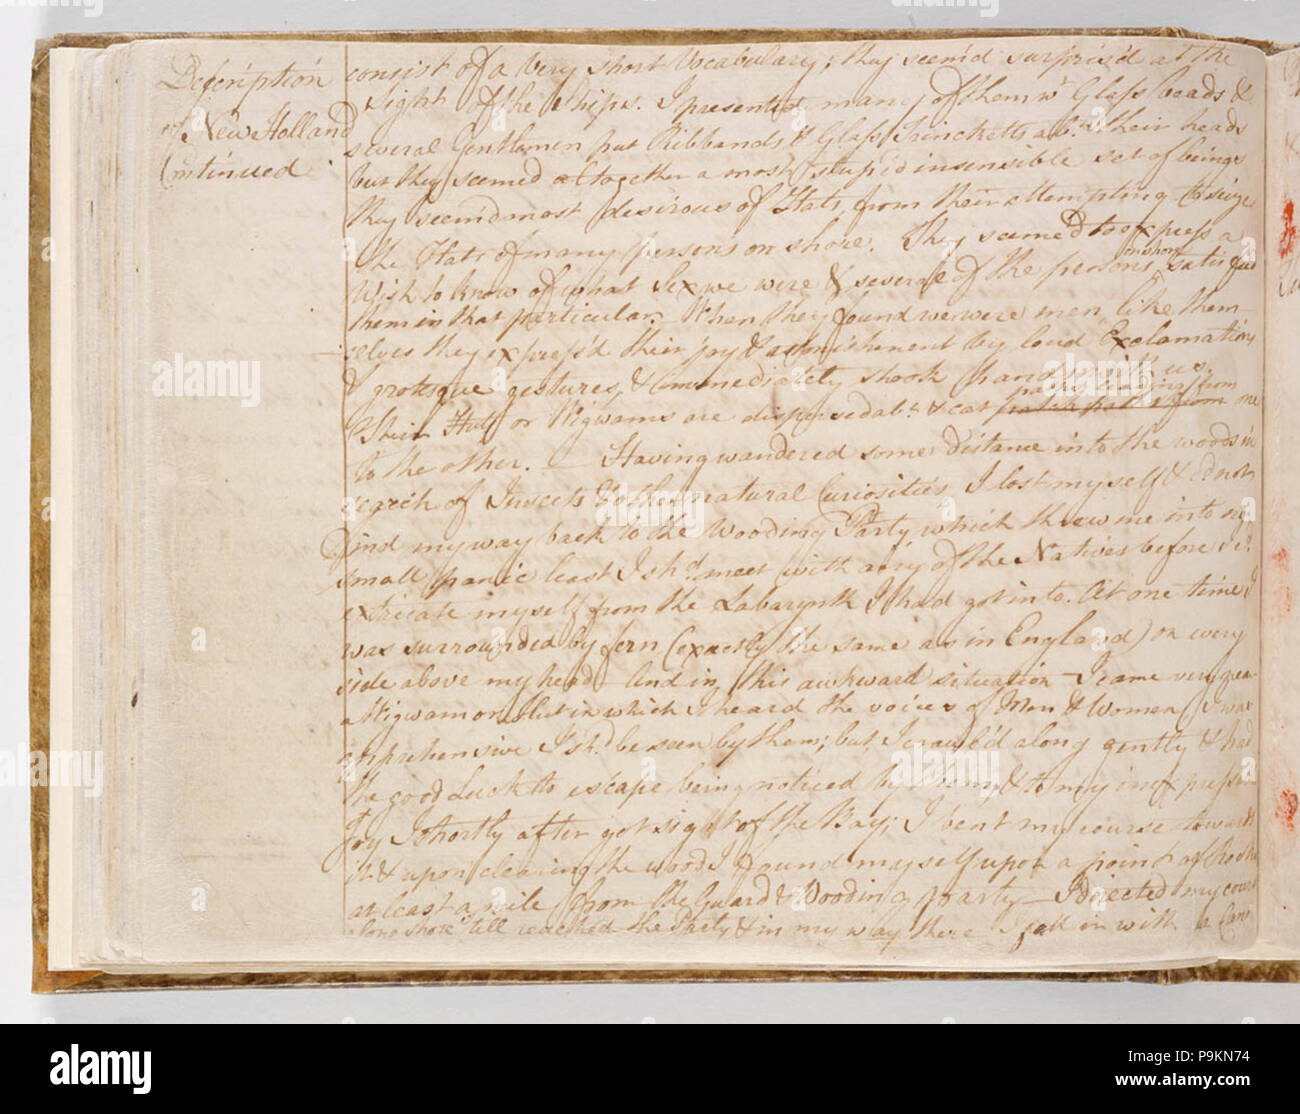 Description
of New Holland
Continued
consist of a very short Vocabulary; they seem'd surpris'd at the
sight of the Ships. I presented many of them wt. Glass beads &
several Gentlemen put Ribbands & Glass Trincketts abt. their heads
but they seemed altogether a most stupid insensible set of beings
they seem'd most desirous of Hats, from their attempting to seize
the Hats of many persons on shore. They seemed to express a
wish to know of what Sex we were & several of the persons on shore satisfied
them in that particular. When they found we were men like them
-selves they express'd their joy & astonishment by loud Exclamations
& grotesque gestures, & immediately shook hands with us.
Their Huts or Wigwams are dispersed abt. & from one
to the other. — Having wandered some distance into the woods in
search of Insects & other natural Curiosities I lost myself & cd. not
find my way back to the Wooding Party which threw me into no
small panic least I shd. meet with any of the Natives before I cd.
extricate myself from the Labarynth I had got into. At one time I
was surrounded by fern (exactly the same as in England) on every
side above my head And in this awkward situation I came very near
a Wigwam or Hut in which I heard the voices of Men & Women (I was
apprehensive I shd. be seen by them; but I crawl'd along gently & had
the good Luck to escape being noticed by them, & to my inexpressible
joy I shortly after got sight of the Bay; I bent my course towards
it & upon clearing the woods I found myself upon a point of Rocks
at least a mile from the Guard & Wooding party — I directed my course
along shore 'till reached the Party & in my way there I fell in with a
alamy
Image ID: P9KN74
www.alamy.com